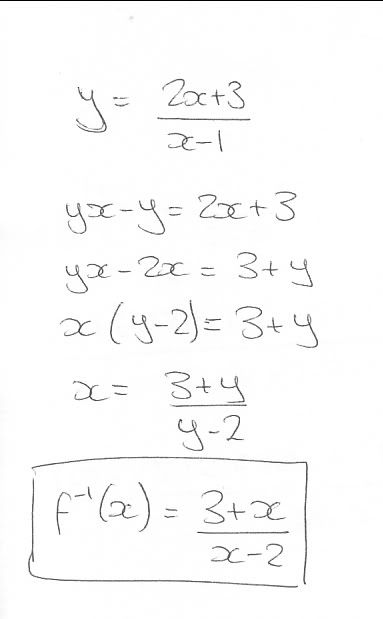 y = (2x+3)/(x-1)
yx-y = 2x+3
yx-2x = 3+y
x(y-2) = 3+y
x = (3+y)/(y-2)
f⁻¹(x) = (3+x)/(x-2)